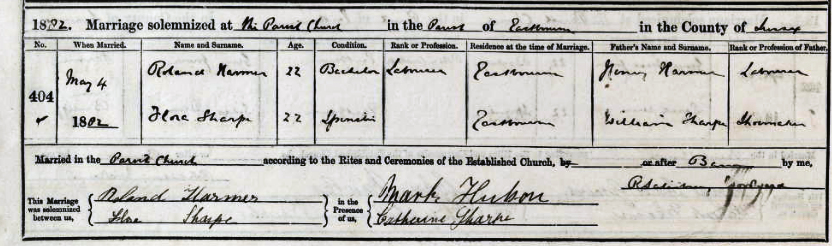 1892. Marriage solemnized at the Parish Church in the Parish of Eastbourne in the County of Sussex
No. When Married. Name and Surname. Age. Condition. Rank or Profession. Residence at the time of Marriage. Father's Name and Surname. Rank or Profession of Father.
404 May 4 Roland Harmer 22 Bachelor Labourer Eastbourne Henry Harmer Labourer
1892 Flora Sharpe 22 Spinster Eastbourne William Sharpe Shoemaker
Married in the Parish Church according to the Rites and Ceremonies of the Established Church, by or after Banns by me,
This Marriage was solemnized between us, Roland Harmer in the Presence of us, Mark
Flora Sharpe Catherine Sharpe